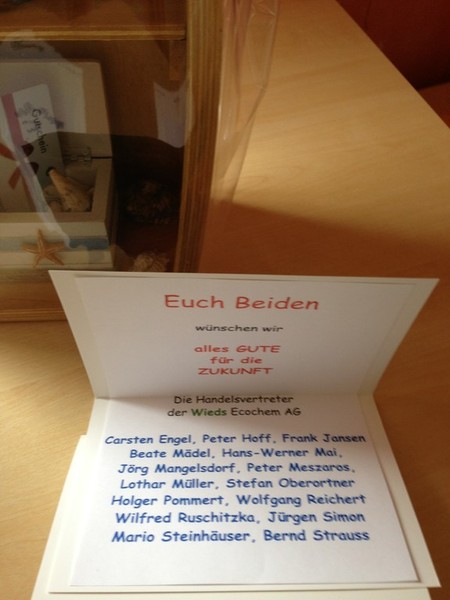 Gutschein
Euch Beiden
wünschen wir
alles GUTE
für die
ZUKUNFT
Die Handelsvertreter
der Wieds Ecochem AG
Carsten Engel, Peter Hoff, Frank Jansen
Beate Mädel, Hans-Werner Mai,
Jörg Mangelsdorf, Peter Meszaros,
Lothar Müller, Stefan Oberortner
Holger Pommert, Wolfgang Reichert
Wilfred Ruschitzka, Jürgen Simon
Mario Steinhäuser, Bernd Strauss